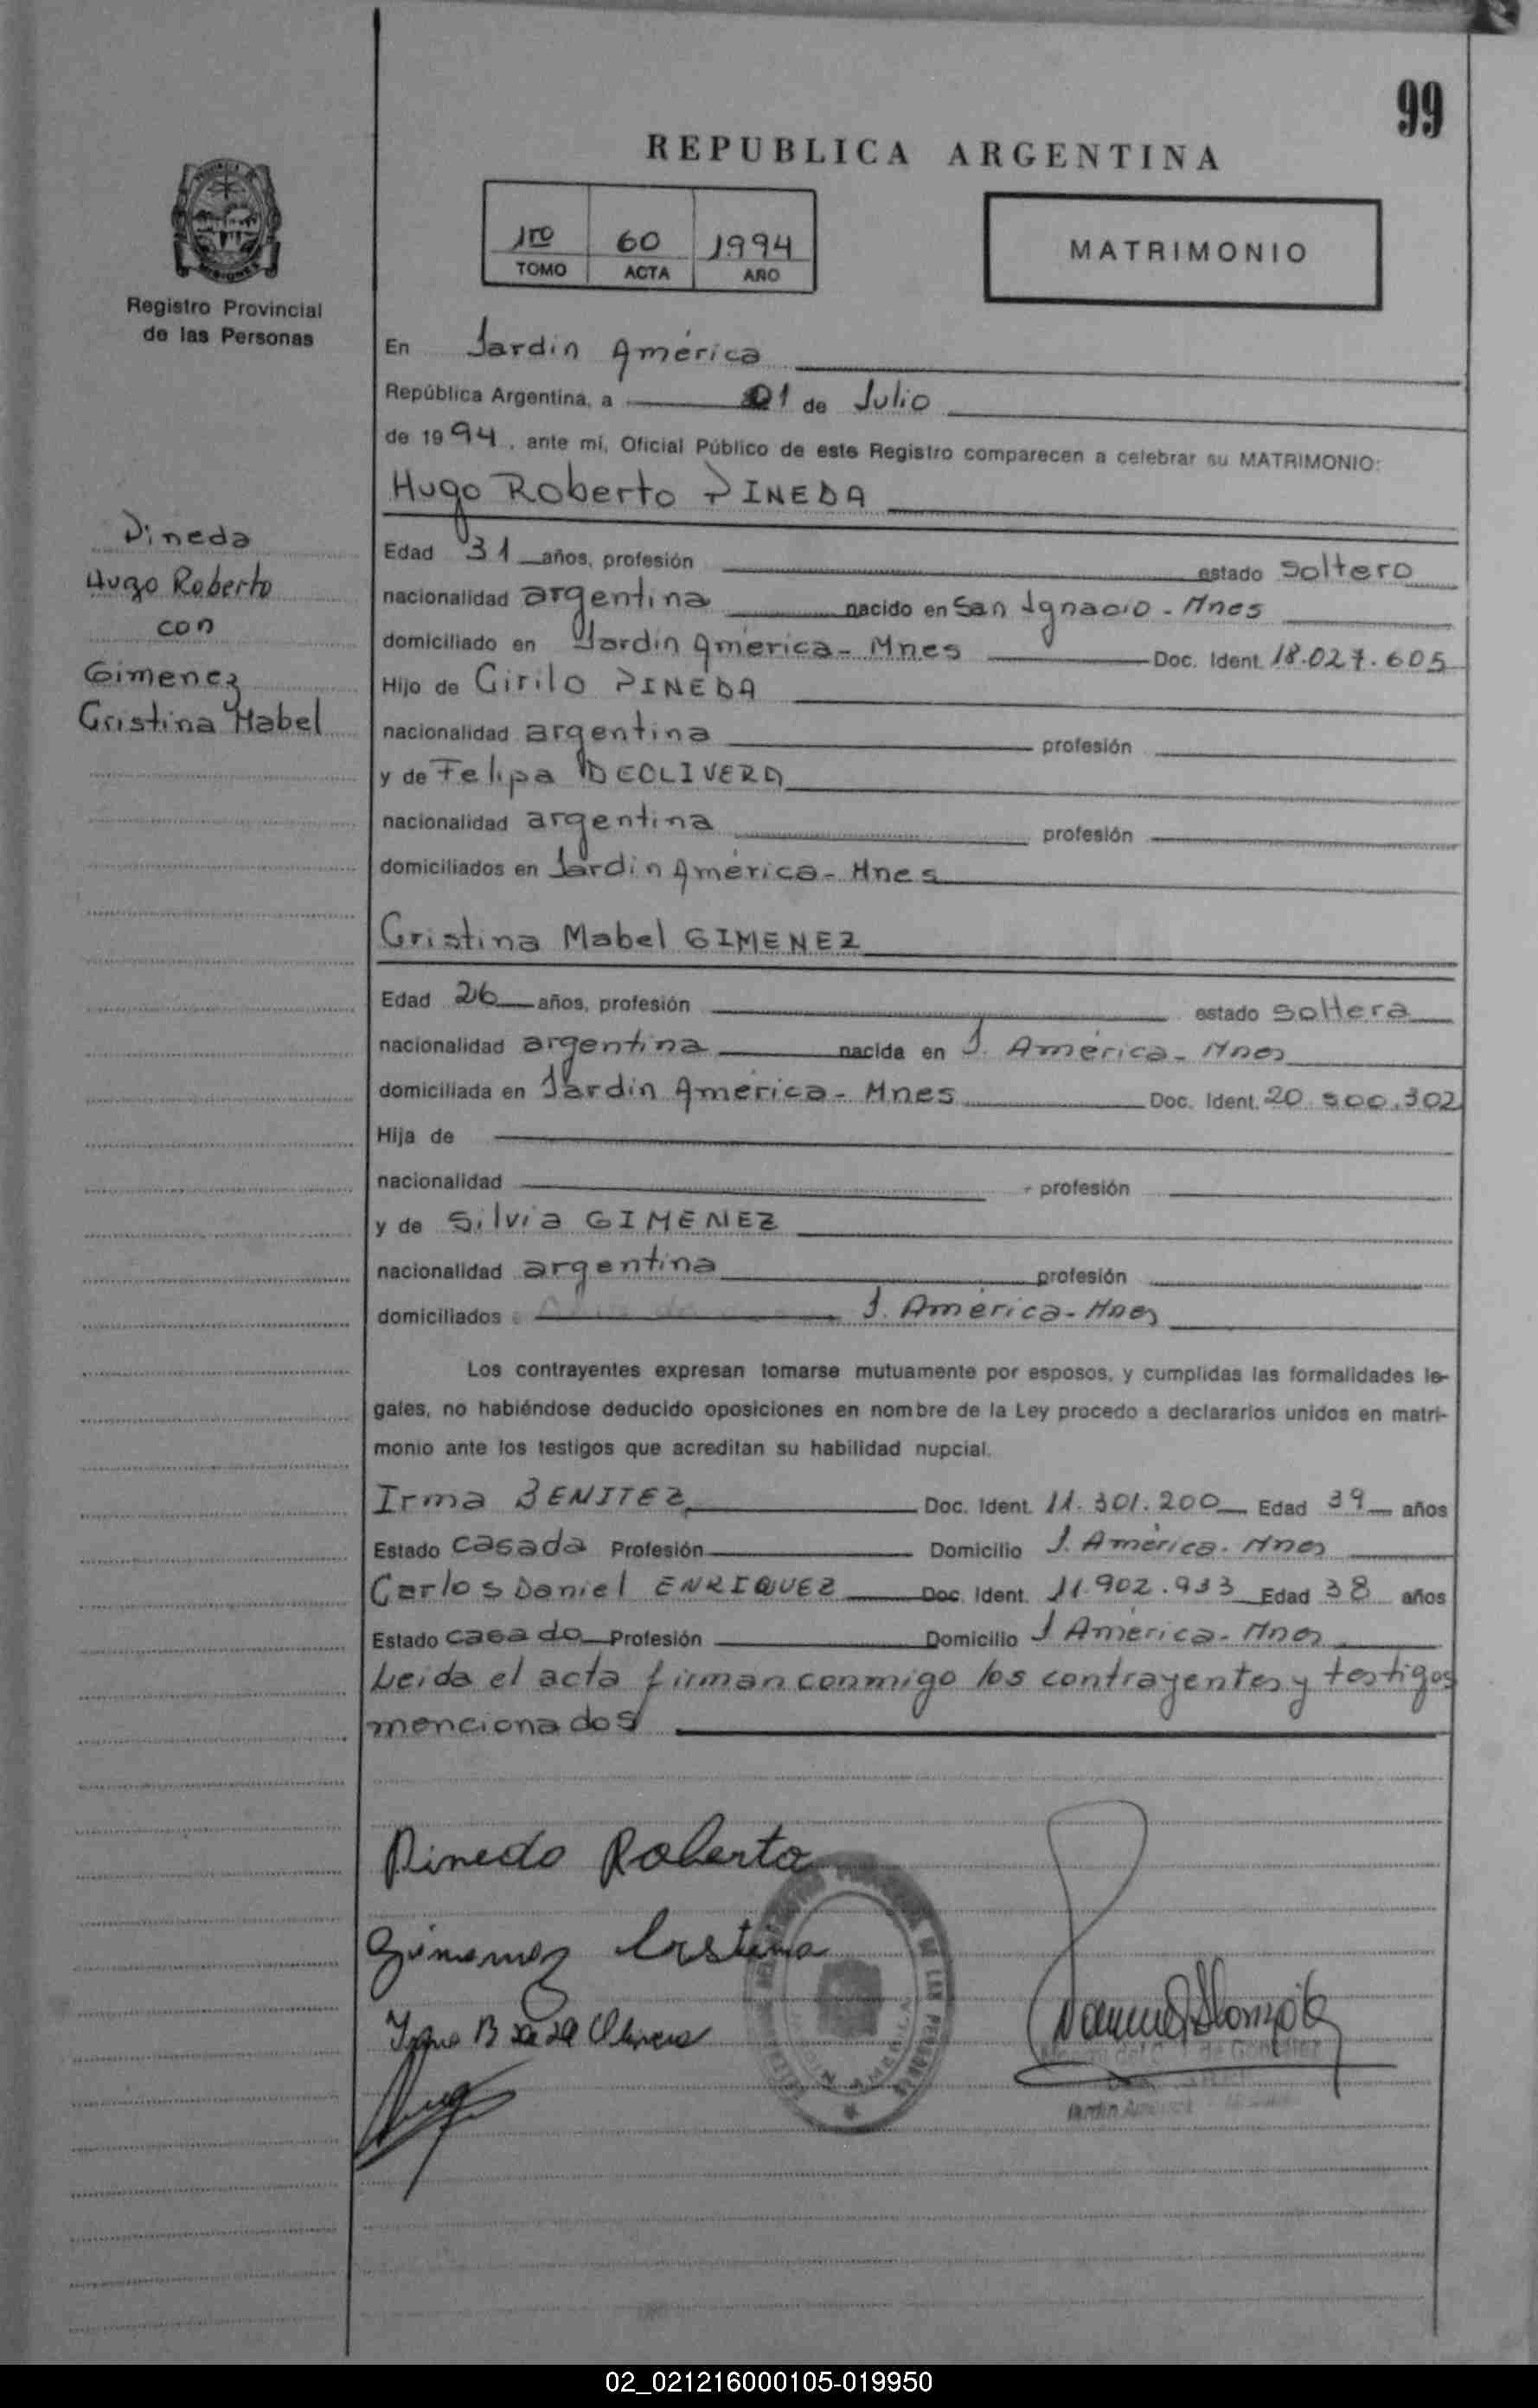 99
REPUBLICA ARGENTINA
1ro 60 1994
TOMO ACTA AÑO
MATRIMONIO
Registro Provincial
de las Personas
En Jardin América
República Argentina, a 01 de Julio
de 1994, ante mí, Oficial Público de este Registro comparecen a celebrar su MATRIMONIO:
Hugo Roberto PINEDA
Pineda
Hugo Roberto
con
Gimenez
Cristina Mabel
Edad 31 años, profesión estado soltero
nacionalidad argentina nacido en San Ignacio - Mnes
domiciliado en Jardin América - Mnes Doc. Ident. 18.027.605
Hijo de Cirilo PINEDA
nacionalidad argentina profesión
y de Felipa DEOLIVERA
nacionalidad argentina profesión
domiciliados en Jardin América - Mnes
Cristina Mabel GIMENEZ
Edad 26 años, profesión estado soltera
nacionalidad argentina nacida en J. América - Mnes
domiciliada en Jardin América - Mnes Doc. Ident. 20.500.302
Hija de
nacionalidad profesión
y de Silvia GIMENEZ
nacionalidad argentina profesión
domiciliados J. América - Mnes
Los contrayentes expresan tomarse mutuamente por esposos, y cumplidas las formalidades le-
gales, no habiéndose deducido oposiciones en nombre de la Ley procedo a declararlos unidos en matri-
monio ante los testigos que acreditan su habilidad nupcial.
Irma BENITEZ Doc. Ident. 11.301.200 Edad 39 años
Estado casada Profesión Domicilio J. América - Mnes
Carlos Daniel ENRIQUEZ Doc. Ident. 11.902.933 Edad 38 años
Estado casado Profesión Domicilio J América - Mnes
Leida el acta firman conmigo los contrayentes y testigos
mencionados
Pineda Roberto
Gimenez Cristina
02_021216000105-019950